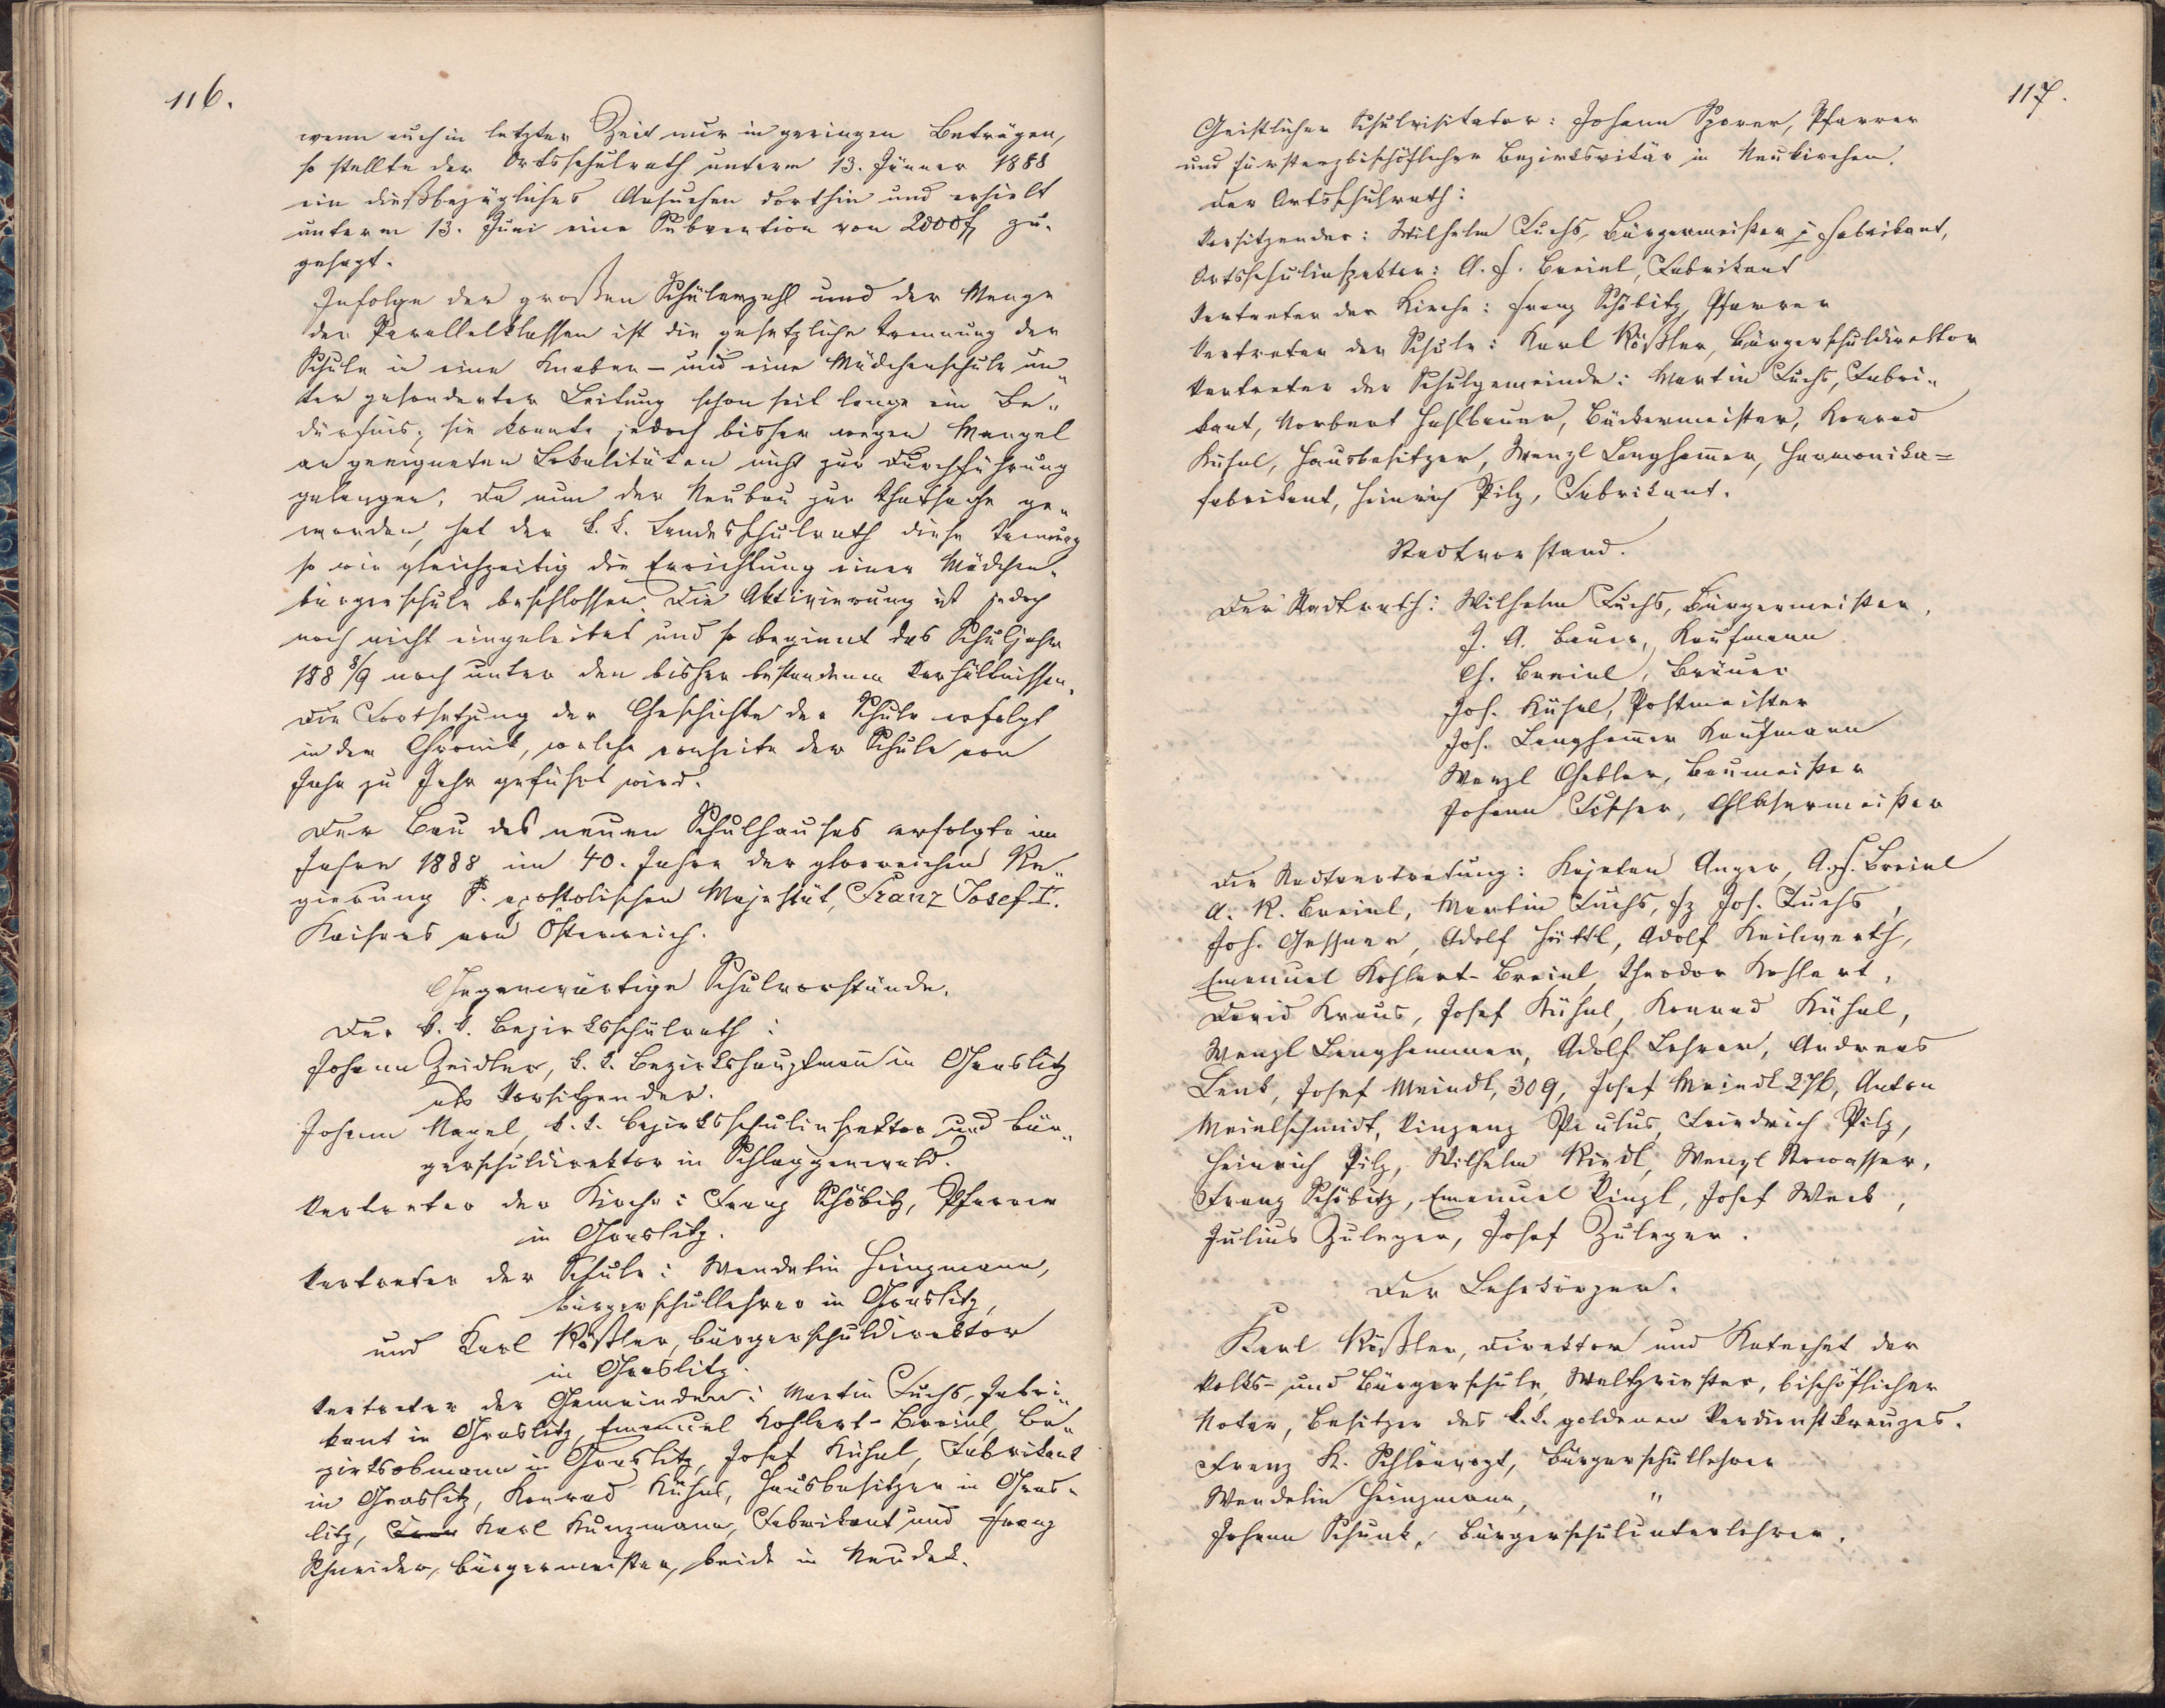 116.
wenn auch in letzter Zeit nur in geringen Beträgen,
so stellte der Ortsschulrath unterm 13. Jänner 1888
ein dießbezügliches Ansuchen dorthin und erhielt
unterm 13. Juni eine Subvention von 2000 f zu-
gesagt.
Infolge der großen Schülerzahl und der Menge
der Parallelklassen ist die gesetzliche Trennung der
Schule in eine Knaben- und eine Mädchenschule un„
ter gesonderter Leitung schon seit lange ein Be„
dürfnis; sie konnte jedoch bisher wegen Mangel
an geeigneten Lokalitäten nicht zur Durchführung
gelangen. Da nun der Neubau zur Thatsache ge„
worden, hat der k. k. Landesschulrath diese Trennung
so wie gleichzeitig die Errichtung einer Mädchen-
bürgerschule beschlossen. Die Aktivierung ist jedoch
noch nicht eingeleitet und so beginnt das Schuljahr
188 8/9 noch unter den bisher bestandenen Verhältnissen.
Die Fortsetzung der Geschichte der Schule erfolgt
in der Chronik, welche vonseite der Schule von
Jahr zu Jahr geführt wird.
Der Bau des neuen Schulhauses erfolgte im
Jahre 1888 im 40. Jahre der glorreichen Re„
gierung S. apostolischen Majestät, Franz Josef I.
Kaisers von Österreich.
Gegenwärtige Schulvorstände.
Der k. k. Bezirksschulrath:
Johann Zeidler, k. k. Bezirkshauptmann in Graslitz
als Vorsitzender.
Johann Nagel, k. k. Bezirksschulinspektor und Bür„
gerschuldirektor in Schlaggenwald.
Vertreter der Kirche: Franz Schöbitz, Pfarrer
in Graslitz.
Vertreter der Schule: Wendelin Heinzmann,
Bürgerschullehrer in Graslitz,
und Karl Rößler, Bürgerschuldirektor
in Graslitz.
Vertreter der Gemeinden: Martin Fuchs, Fabri„
kant in Graslitz, Emanuel Kohlert-Breinl, Be„
zirksobmann in Graslitz, Josef Kühnl, Fabrikant
in Graslitz, Konrad Kühnl, Hausbesitzer in Gras-
litz, Karl Kunzmann, Fabrikant und Franz
Schneider, Bürgermeister, beide in Neudek.
117.
Geistlicher Schulvisitator: Johann Sporer, Pfarrer
und fürsterzbischöflicher Bezirksvikär in Neukirchen.
Der Ortsschulrath:
Vorsitzender: Wilhelm Fuchs, Bürgermeister u. Fabrikant,
Ortsschulinspektor: A. F. Breinl, Fabrikant
Vertreter der Kirche: Franz Schöbitz, Pfarrer
Vertreter der Schule: Karl Rößler, Bürgerschuldirektor
Vertreter der Schulgemeinde: Martin Fuchs, Fabri„
kant, Norbert Hahlbauer, Bäckermeister, Konrad
Kühnl, Hausbesitzer, Wenzl Langhammer, Harmonika=
fabrikant, Heinrich Pilz, Fabrikant.
Stadtvorstand.
Der Stadtrath: Wilhelm Fuchs, Bürgermeister,
J. A. Bauer, Kaufmann
G. Breinl, Bräuer
Jos. Kühnl, Postmeister
Jos. Langhammer Kaufmann
Wenzl Gebler, Baumeister
Johann Fischer, Glasermeister
Die Stadtvertretung: Kajetan Anger, A. F. Breinl
A. K. Breinl, Martin Fuchs, Fz Jos. Fuchs,
Joh. Gessner, Adolf Hüttl, Adolf Keilwerth,
Emanuel Kohlert-Breinl, Theodor Kohlert,
David Kraus, Josef Kühnl, Konrad Kühnl,
Wenzl Langhammer, Adolf Lehrer, Andreas
Lenk, Josef Meindl, 309, Josef Meindl 276, Anton
Meinlschmidt, Vinzenz Paulus, Friedrich Pilz,
Heinrich Pilz, Wilhelm Riedl, Wenzl Stowasser,
Franz Schöbitz, Emanuel Künzl, Josef Weck,
Julius Zuleger, Josef Zuleger.
Der Lehrkörper.
Karl Rößler, Direktor und Katechet der
Volks- und Bürgerschule, Weltpriester, bischöflicher
Notar, Besitzer des k. k. goldenen Verdienstkreuzes.
Franz K. Schlörvogt, Bürgerschullehrer
Wendelin Heinzmann, "
Johann Schunk, Bürgerschulunterlehrer.